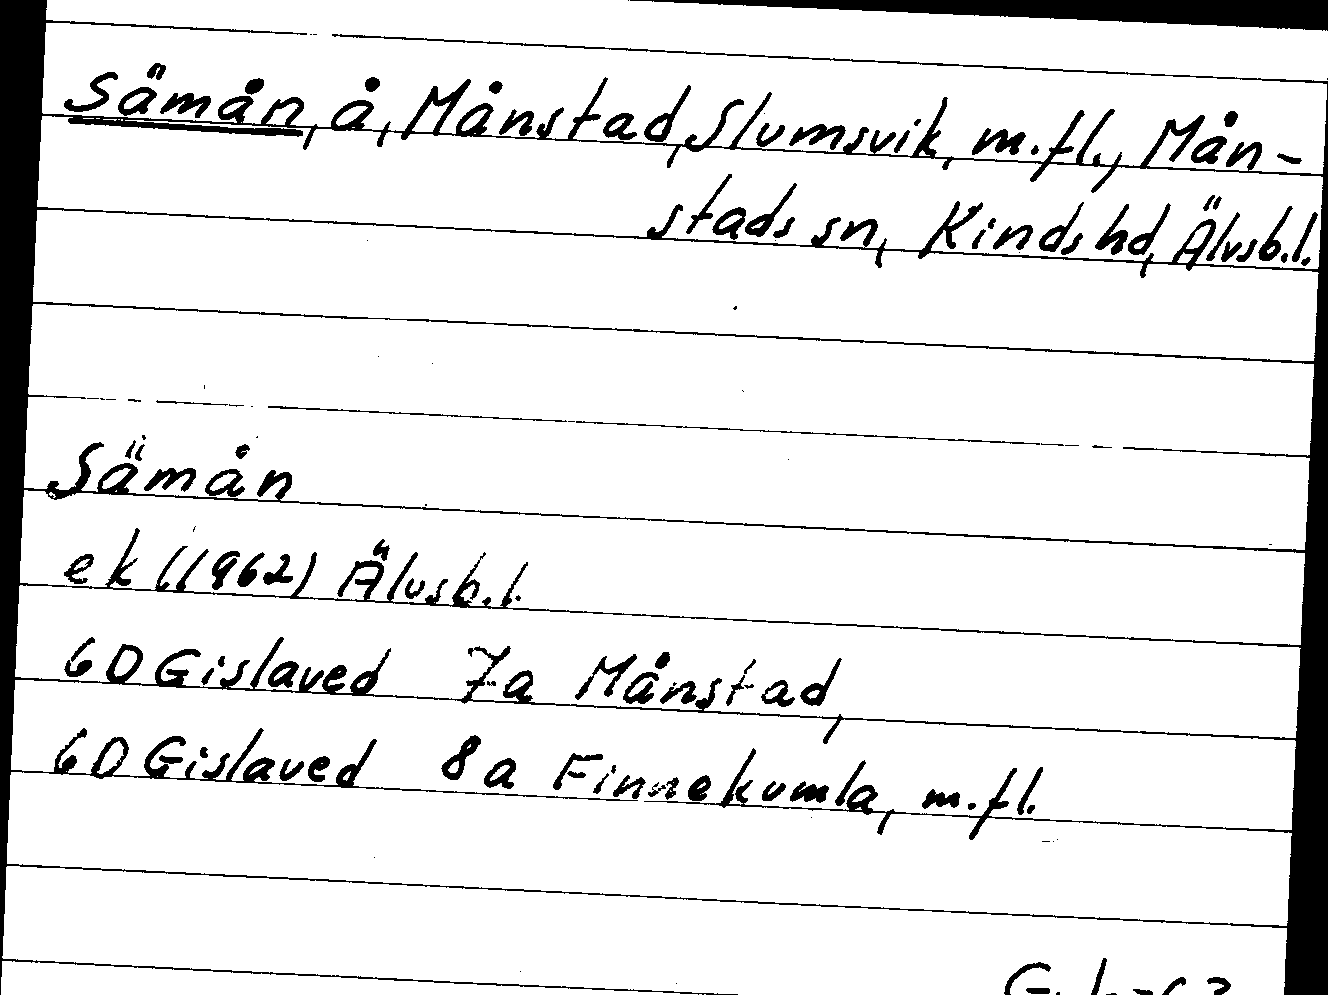 Sämån, å, Månstad, Slumsvik, m.fl., Mån-
stads sn, Kinds hd, Älvsb.l.
Sämån
ek (1962) Älvsb.l.
6D Gislaved 7a Månstad,
6D Gislaved 8a Finnekumla, m.fl.